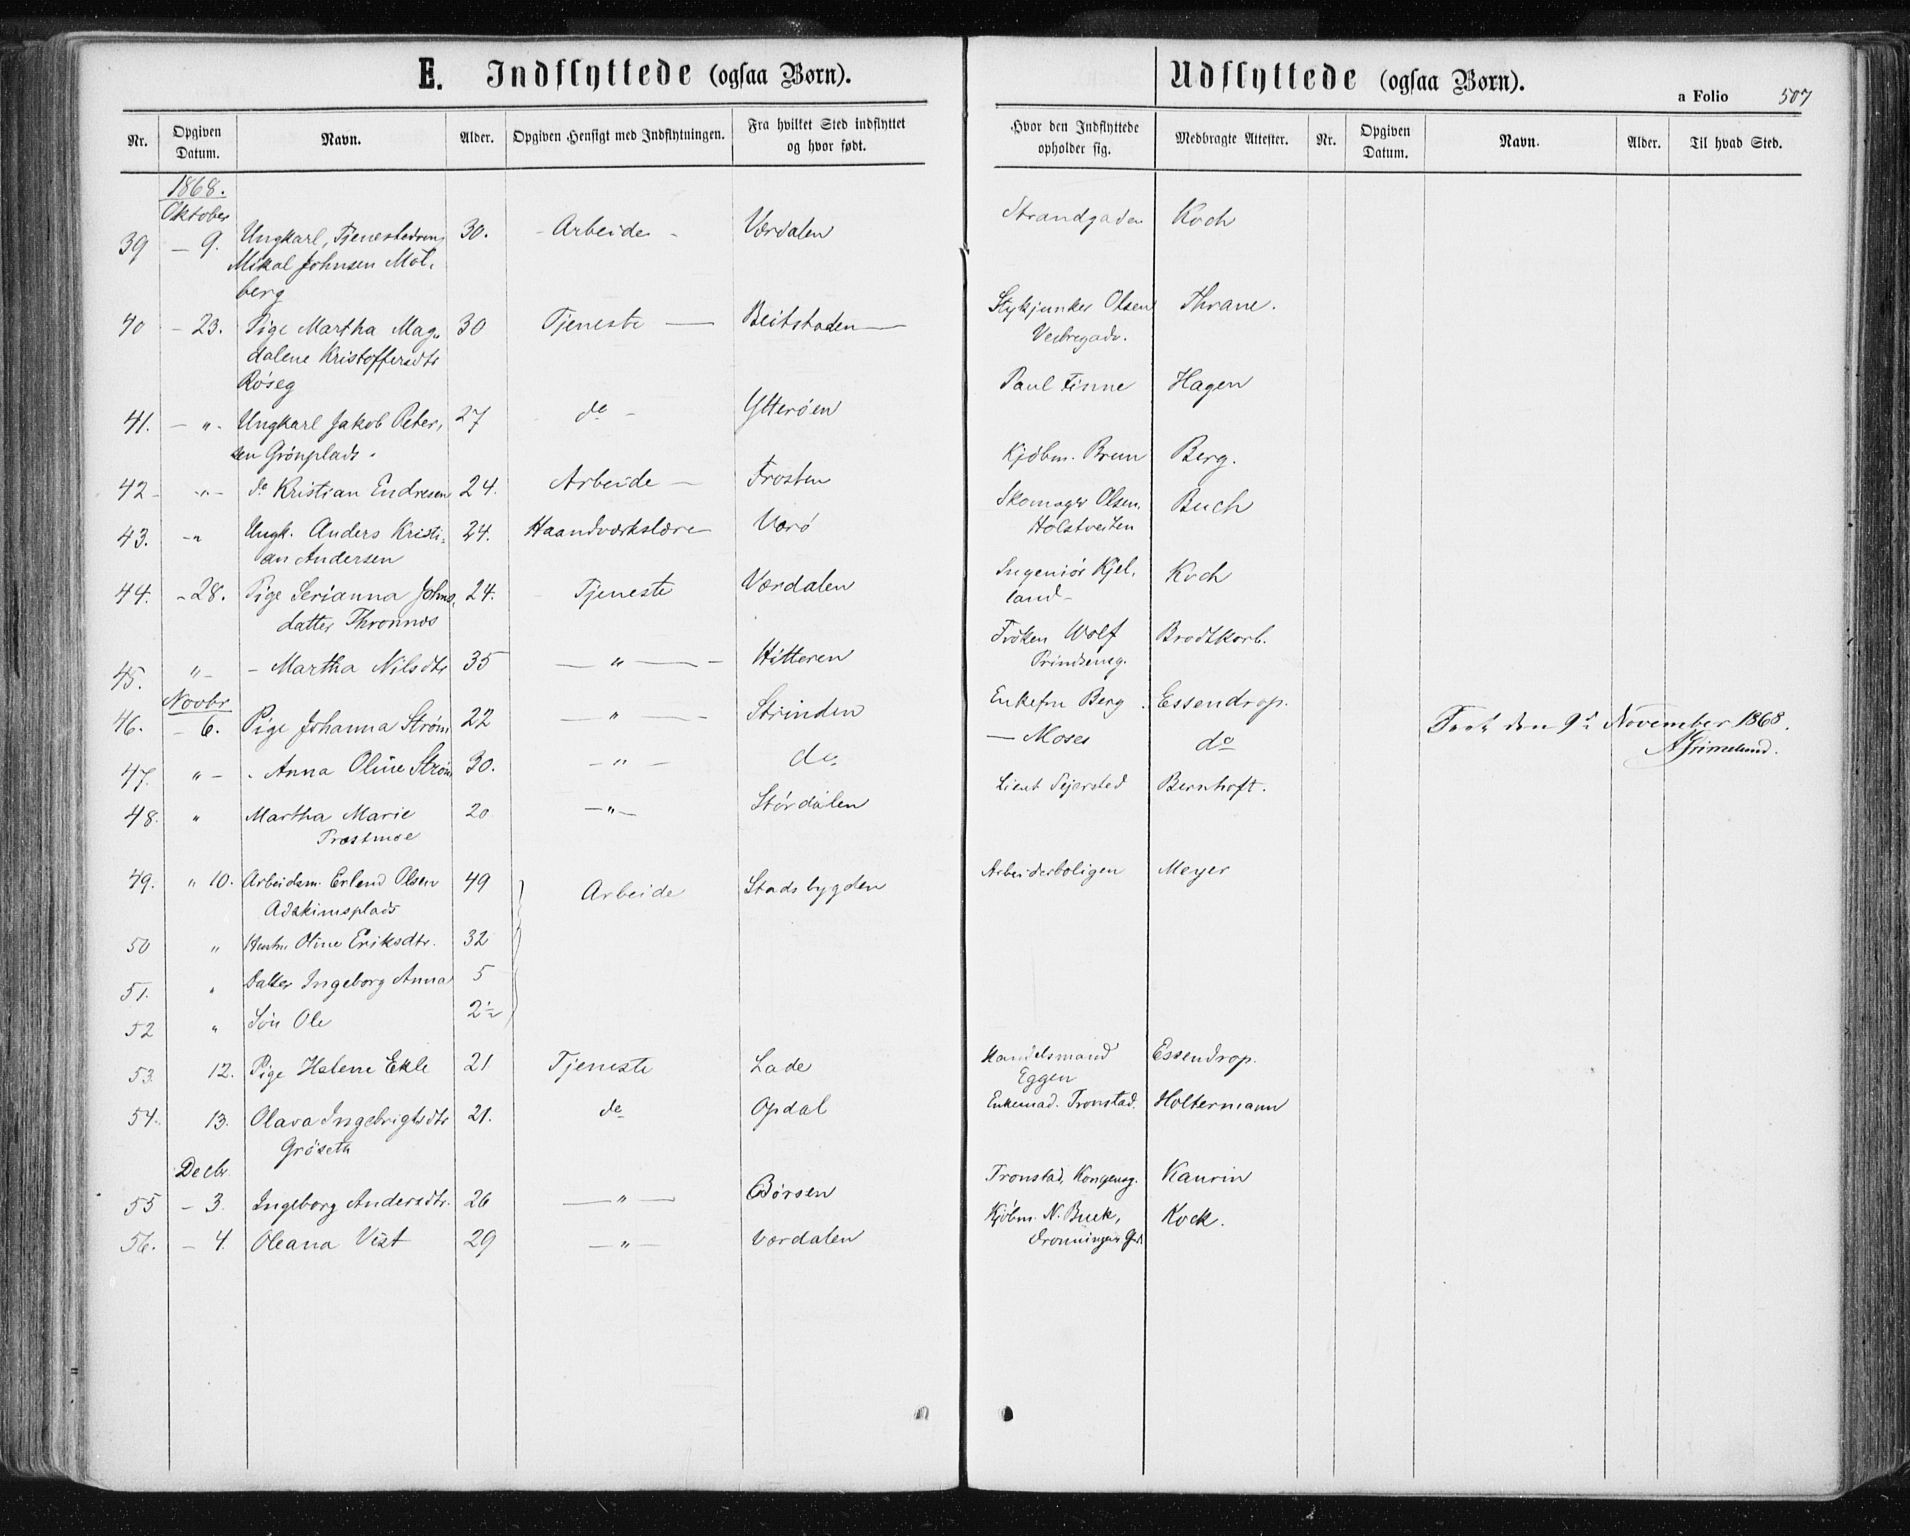 E. Indflyttede (ogsaa Børn).
Udflyttede (ogsaa Børn).
a Folio 507
Nr. Opgiven Datum. Navn. Alder. Opgiven Hensigt med Indflytningen. Fra hvilket Sted indflyttet og hvor født. Hvor den Indflyttede opholder sig. Medbragte Attester. Nr. Opgiven Datum. Navn. Alder. Til hvad Sted.
1868.
Oktober
39 — 9. Ungkarl, Tjenestedreng 30. - Arbeide - Værdalen Strandgaden Koch
Mikal Johnsen Mol-
berg
40 — 23. Pige Martha Mag- 30 Tjeneste — Beitstaden — Stykjunker Olsen Thrane.
dalene Kristoffersdtr
Røseg
41. — " - Ungkarl Jakob Peter- 27 do - Ytterøen Paul Finne Hagen
sen Grønplads.
42 - " - do Kristian Endresen 24. Arbeide — Frosten Kjøbm. Brun Berg.
43. - " Ungk. Anders Kristi- 24. Haandværkslære Værø Skomager Olsen. Buch
an Andersen Holstveiten
44. - 28. Pige Serianna Johns- 24. Tjeneste Værdalen Ingeniør Kjel- Koch
datter Thronnæs land-
45. " - - Martha Nilsdtr 35 — " — Hitteren Frøken Wolf Brodtkorb.
Prindseng.
Novbr
46. - 6. Pige Johanna Strøm 22 — " — Strinden Enkefru Berg. Essendrop.
47. " - - Anna Oline Strøm 30. — " — do. — Moses do
Seet den 9de November 1868.
AGrimelund.
48. " Martha Marie 20 — " — Størdalen Lieut Sejersted Bernhoft.
Præstmoe
49. " 10. Arbeidsm. Erlend Olsen 49 Arbeide Stadsbygden Arbeiderboligen Meyer
Adskimsplads
50 " Hustru Oline Eriksdtr. 32
51. " Datter Ingeborg Anna 5
52 " Søn Ole 2½
53. 12. Pige Helene Ekle 21. Tjeneste Lade Handelsmand Essendrop.
Eggen
54. 13. Olava Ingebrigtsdtr 21. do Opdal Enkemad. Tronstad. Holtermann
Grøseth
Decbr
55 - 3. Ingeborg Andersdtr. 26 — " — Børsen Tronstad, Kongensg. Kaurin
56. - 4. Oleana Vist 29 — " — Værdalen Kjøbm. N. Buck, Kock.
Dronningens Gd.